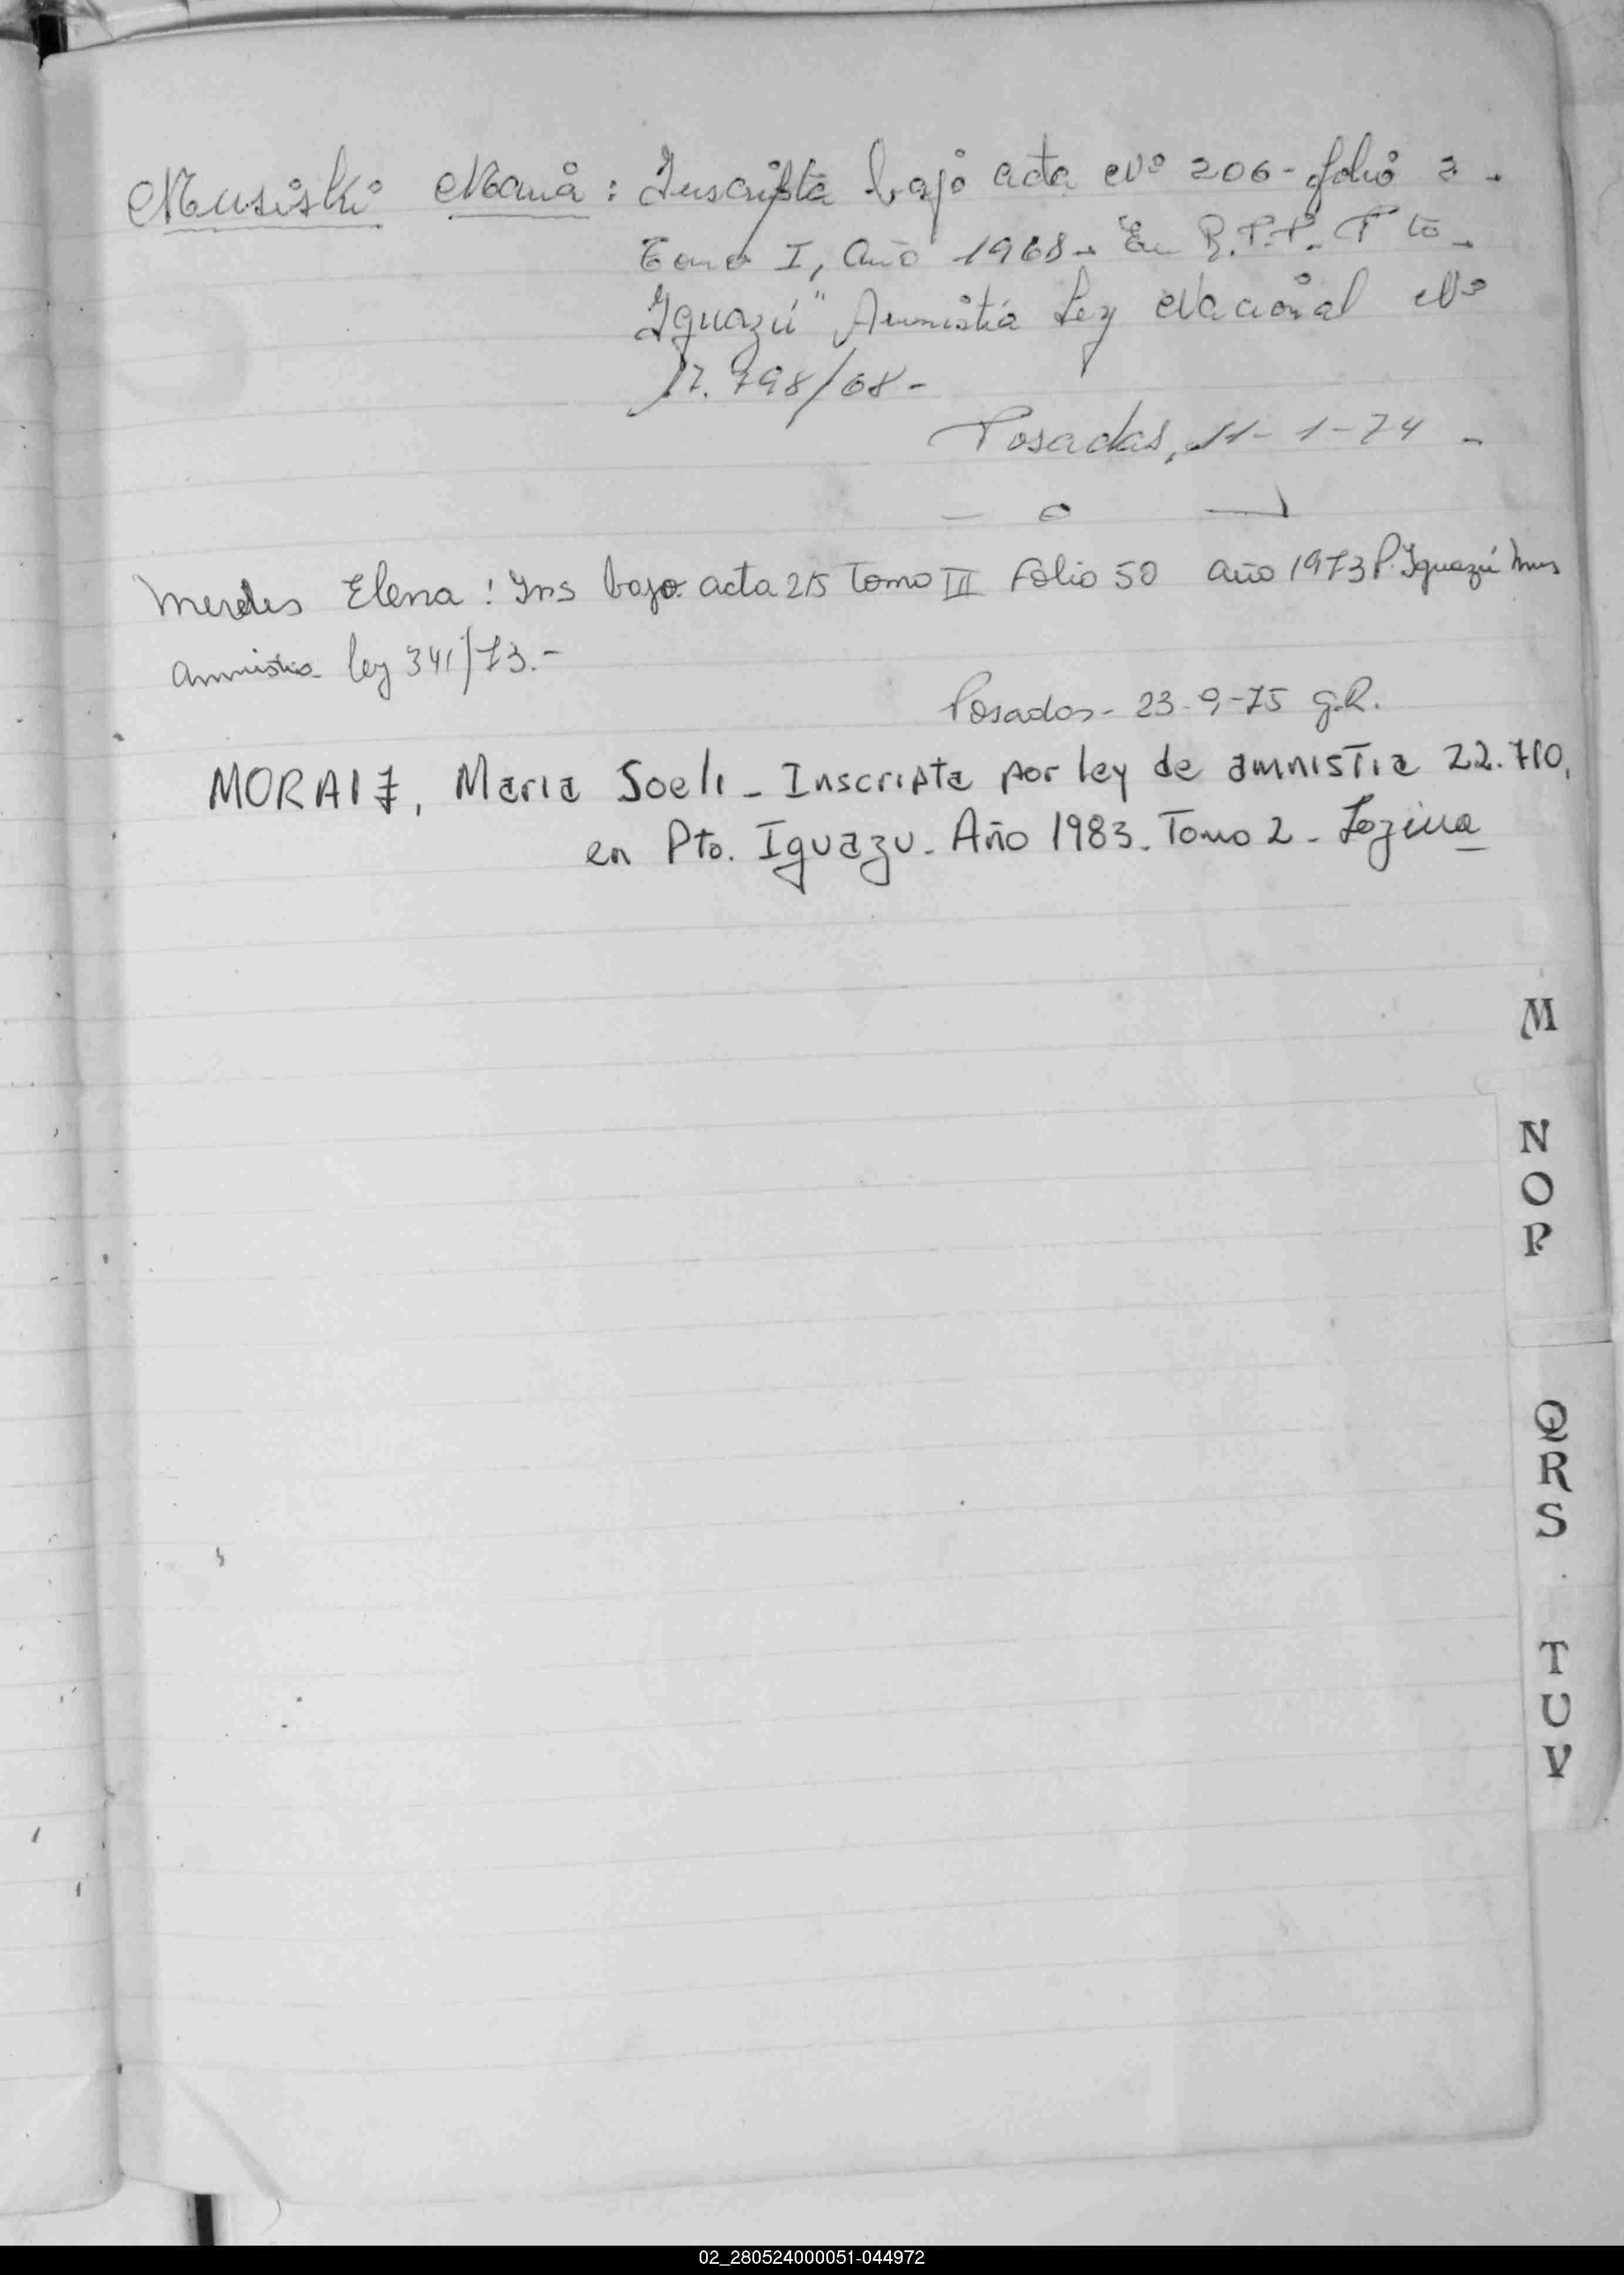 Musiski Maria: Inscripta bajo acta Nº 206 - folio 2 -
Tomo I, año 1968 - En R.P.P. Pto -
Iguazú" Amnistia Ley Nacional Nº
17.798/68 -
Posadas, 11-1-74 -
- o -
Merdes Elena: Ins bajo acta 215 Tomo III Folio 50 año 1973 P. Iguazú Mns
amnistia ley 341/73.-
Posadas - 23-9-75 G.R.
MORAIZ, Maria Soeli - Inscripta por ley de amnistia 22.710,
en Pto. Iguazu. Año 1983. Tomo 2 -
M
N
O
P
Q
R
S
T
U
V
02_280524000051-044972